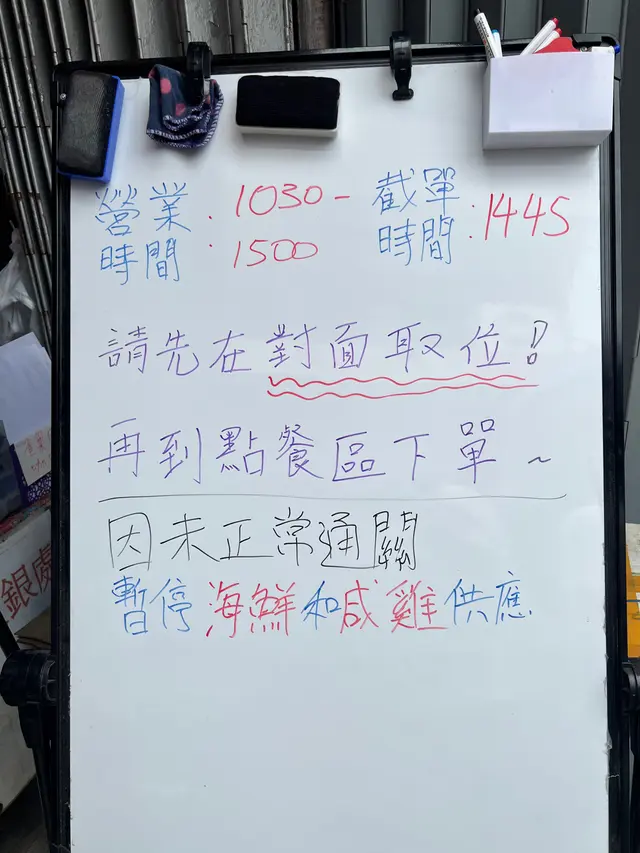 營業時間：1030-1500
截單時間：1445
請先在對面取位！
再到點餐區下單~
因未正常通關
暫停海鮮和咸雞供應
銀處